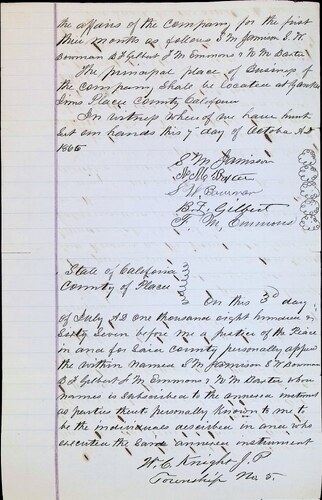 the affairs of the company for the first
three months as follows S M Jamison S. W.
Bowman B F Gilbert F M Emmons & N M Baxter
The principal place of Business of
the company shall be located at Yankee
Jims Placer County California
In witness where of we have hunt
Set our hands this 7th day of October A.D
1865
S M Jamison
N. M. Baxter
S W Bowman
B. F. Gilbert
F. M. Emmons
State of California
County of Placer
On this 3d day
of July AD one thousand eight hundred &
Sixty Seven before me a justice of the Peace
in and for Said County personally appeared
the within named S M Jamison S W Bowman
B F Gilbert F M Emmons & N M Baxter whose
names is subscribed to the annexed instrument
as parties thereto personally known to me to
be the individuals described in and who
executed the Said annexed instrument
W. C. Knight J. P
Township No. 5.